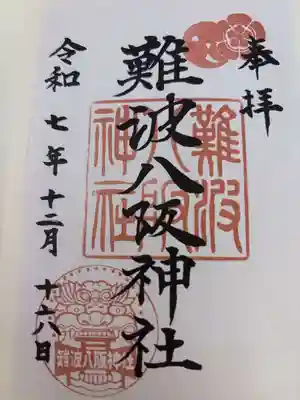 奉拝
難波八阪神社
難波
八阪
神社
令和七年十二月十六日
難波八阪神社